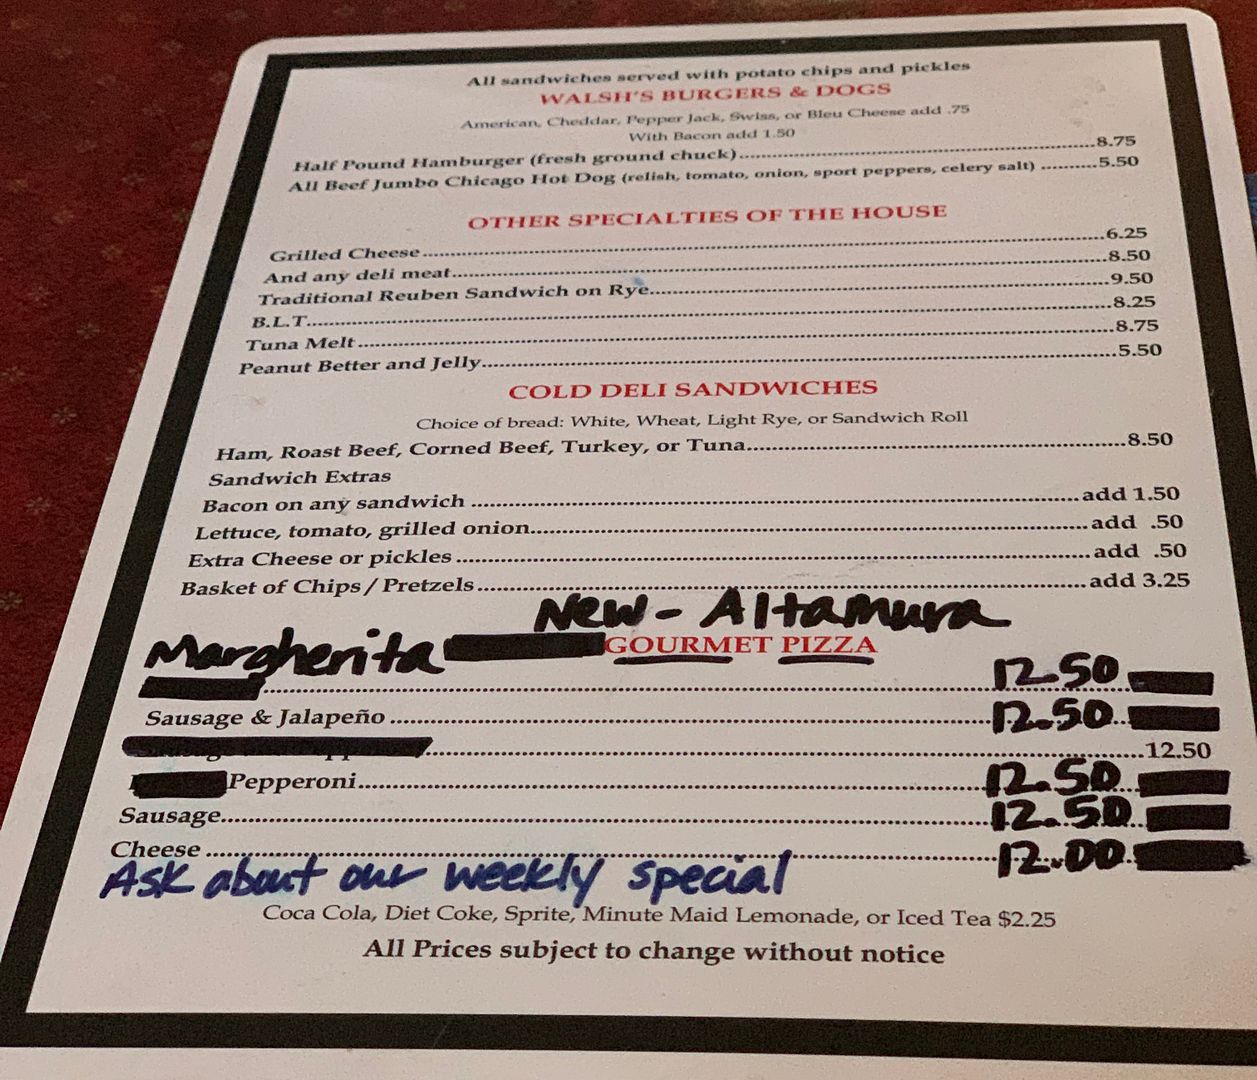 All sandwiches served with potato chips and pickles
WALSH'S BURGERS & DOGS
American, Cheddar, Pepper Jack, Swiss, or Bleu Cheese add .75
With Bacon add 1.50
Half Pound Hamburger (fresh ground chuck)..........8.75
All Beef Jumbo Chicago Hot Dog (relish, tomato, onion, sport peppers, celery salt) ..........5.50
OTHER SPECIALTIES OF THE HOUSE
Grilled Cheese..........6.25
And any deli meat..........8.50
Traditional Reuben Sandwich on Rye..........9.50
B.L.T..........8.25
Tuna Melt..........8.75
Peanut Better and Jelly..........5.50
COLD DELI SANDWICHES
Choice of bread: White, Wheat, Light Rye, or Sandwich Roll
Ham, Roast Beef, Corned Beef, Turkey, or Tuna..........8.50
Sandwich Extras
Bacon on any sandwich ..........add 1.50
Lettuce, tomato, grilled onion..........add .50
Extra Cheese or pickles ..........add .50
Basket of Chips / Pretzels..........add 3.25
New - Altamura
GOURMET PIZZA
Margherita ..........12.50
Sausage & Jalapeño ..........12.50
..........12.50
Pepperoni..........12.50
Sausage..........12.50
Cheese ..........12.00
Ask about our weekly special
Coca Cola, Diet Coke, Sprite, Minute Maid Lemonade, or Iced Tea $2.25
All Prices subject to change without notice